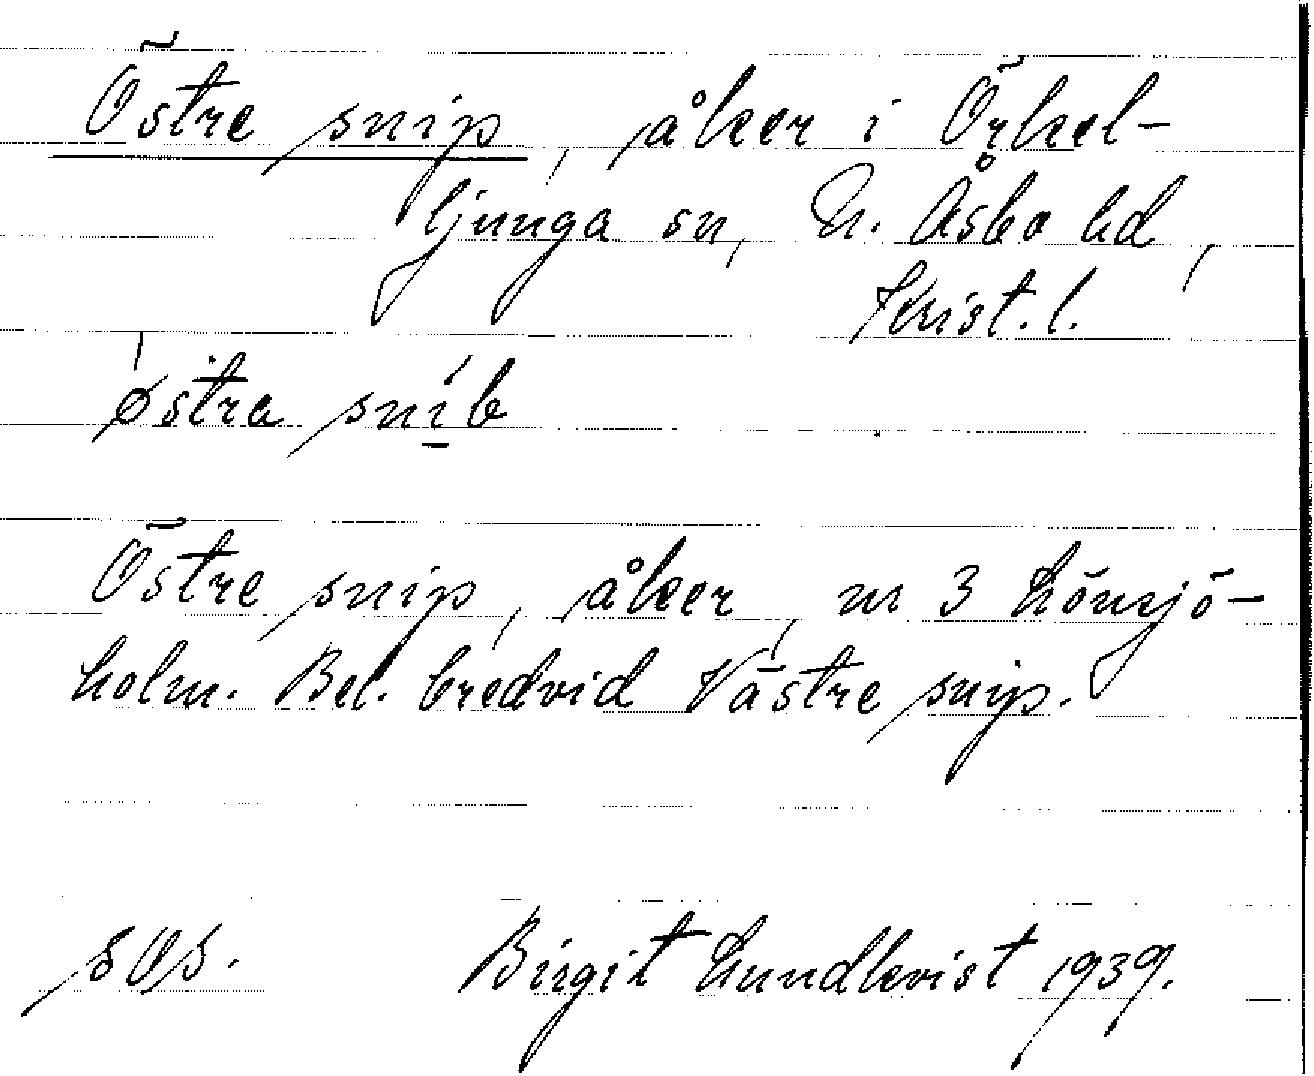 Östre snip, åker i Örkel-
ljunga sn, N. Åsbo hd,
Krist. l.
østra snib
Östre snip, åker, nr 3 Lönsjö-
holm. Bel. bredvid Västre snip.
SOS. Birgit Lundkvist 1939.